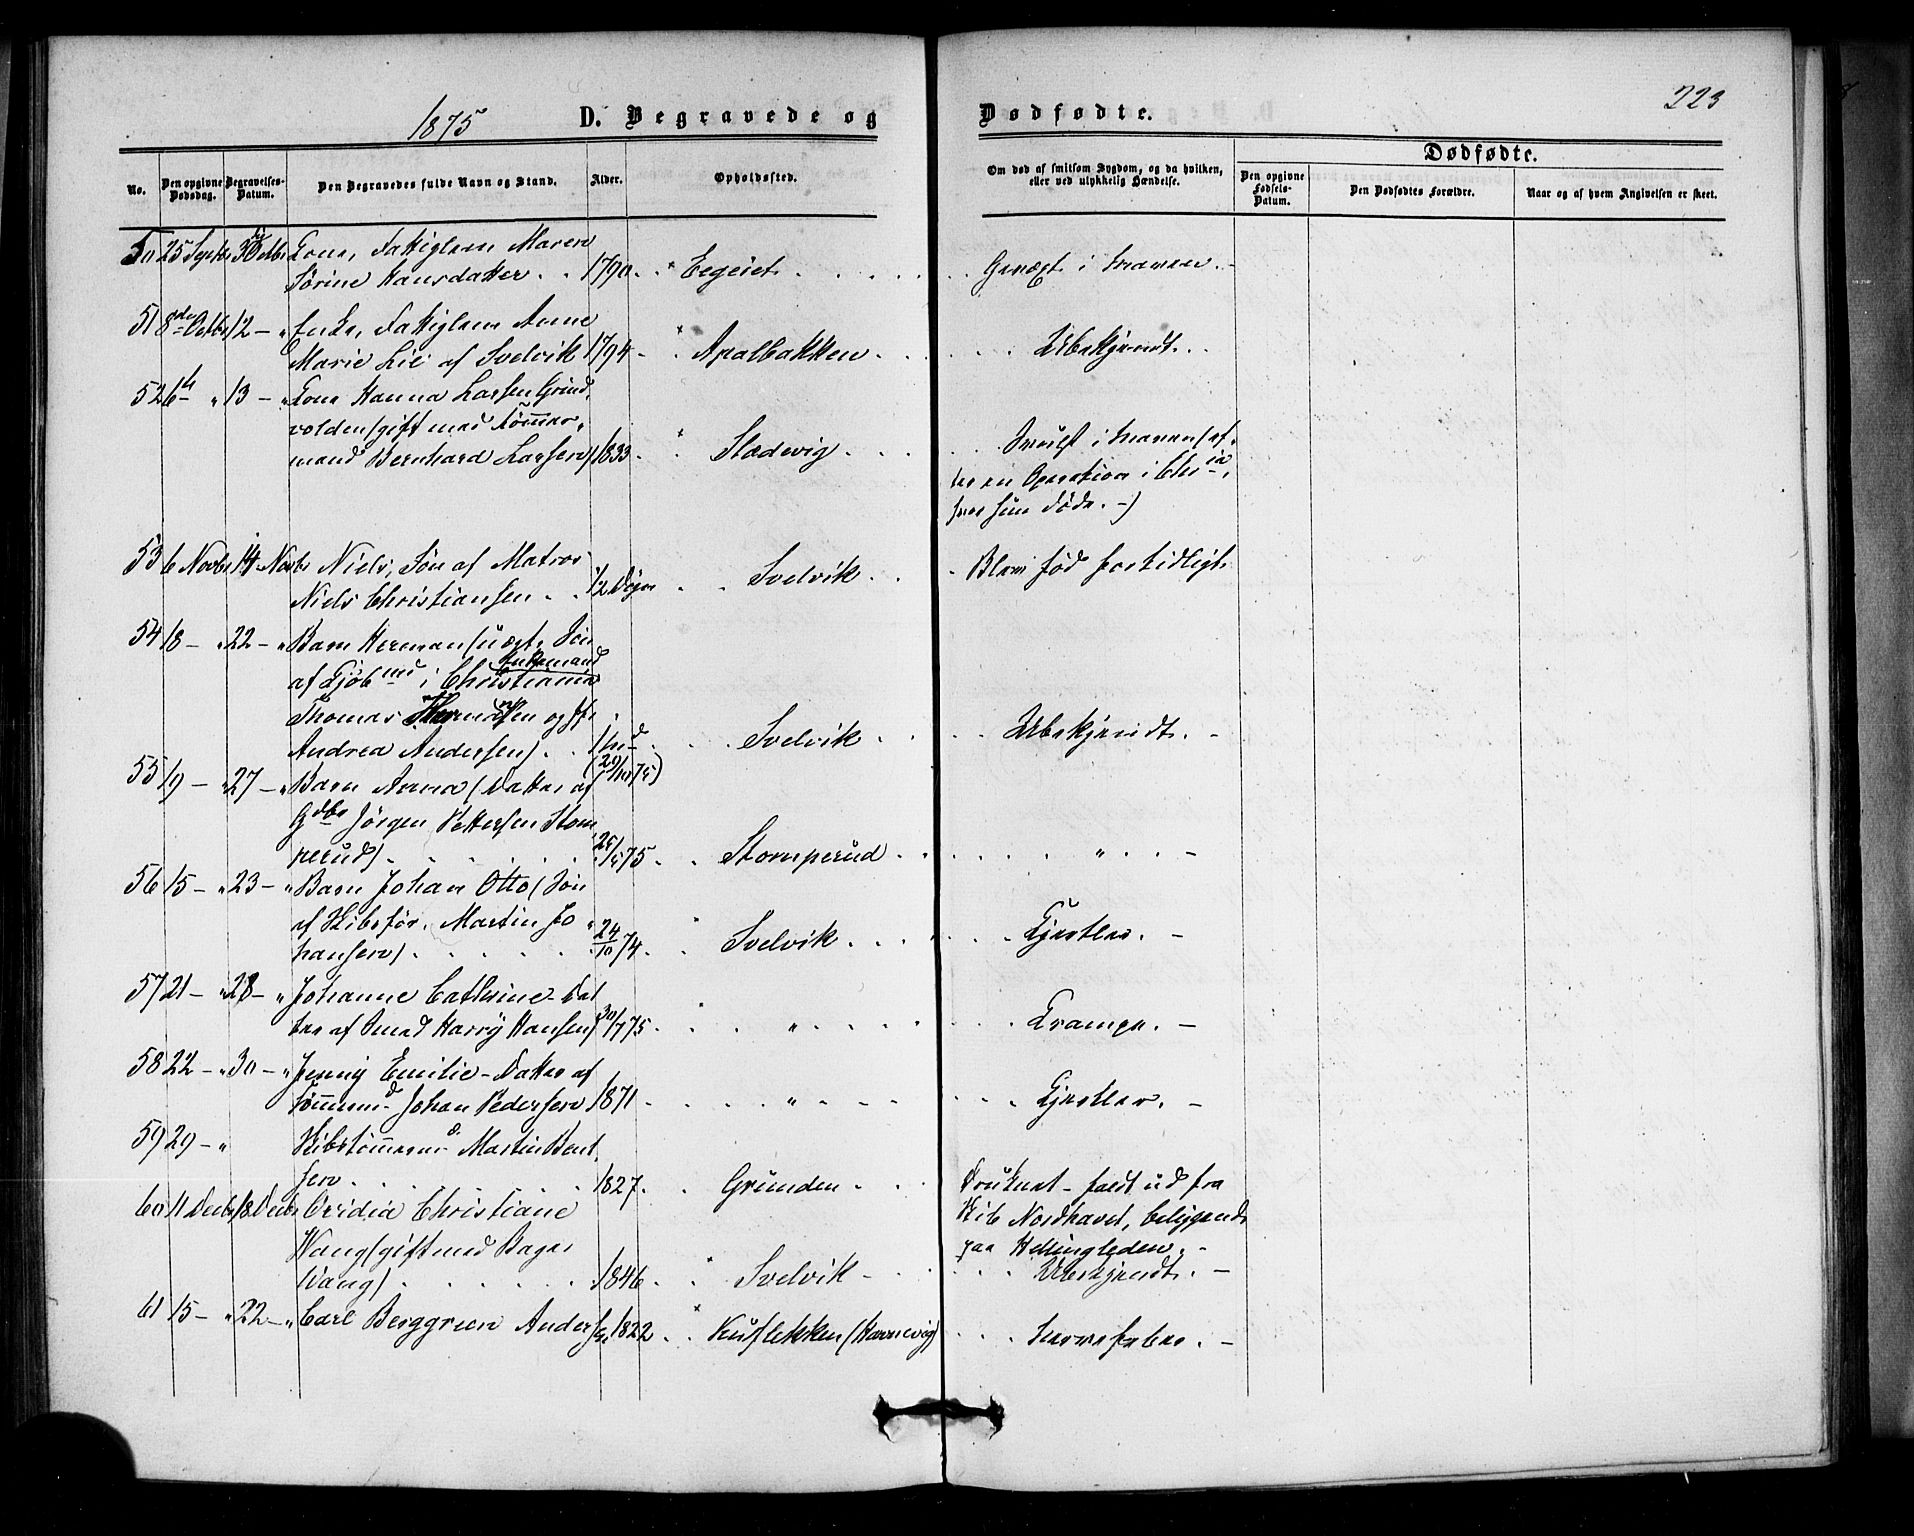 1875 D. Begravede og
Dødfødte. 223
No. Den opgivne Dødsdag. Begravelses-Datum. Den Begravedes fulde Navn og Stand. Alder. Opholdssted.
Om død af smitsom Sygdom, og da hvilken, eller ved ulykkelig Hændelse.
Dødfødte.
Den opgivne Fødsels-Datum. Den Dødfødtes Forældre. Naar og af hvem Angivelsen er skeet.
50 25 Septbr 3 Octbr Kone, Fattiglem Maren
Sørine Hansdatter 1790 Eegeiet i Maven
51 8de Octbr 12 - " Enke, Fattiglem Anne
Marie Lie af Svelvik 1794 Apalbakken Ubekjendt
52 6te " 13 - " Kone Hanna Larsen Grind
volden (gift med Tømmer
mand Bernhard Larsen) 1833 Stadevig Svulst i Maven (ef
ter en Operation i Chr.ia,
hvor hun døde. -)
53 6 Novbr 14 Novbr Niels, Søn af Matros
Niels Christiansen 1/2 Døgn Svelvik Blev fød fortidligt
54 18 - " 22 - " Barn Herman (uægte Søn
af Kjøbmd i Christiania
Enkemand
Thomas Hermansen og
Andrea Andersen) 1 md Svelvik Ubekjendt. -
55 19 - " 27 - " Barn Anna (Datter af
Gdbr Jørgen Pettersen Stom
perud) 75 Stomperud " -
56 15 - " 23 - " Barn Johan Otto (Søn
af Skibsfør. Martin Jo
hansen) 24/10 74 Svelvik Kjertler. -
57 21 - " 28 - " Johanne Cathrine - Dat
ter af Smed Harry Hansen 30/7 75 " Krampe. -
58 22 - " 30 - " Jenny Emilie - Datter af
Tømmermd Johan Pedersen 1871 " Kjertler. -
59 29 - " Skibstømmermd Martin Bent
sen 1827 Grunden Druknet - faldt ud fra
Skib Nordhavet, beliggende
paa Hellingleden. -
60 11 Decbr 18 Decbr Ovidia Christiane
Wang (gift med Bager
Wang) 1846 Svelvik Ubekjendt. -
61 15 - " 22 - " Carl Berggreen Ander
sen 1822 (Havnevig) Nervefeber. -